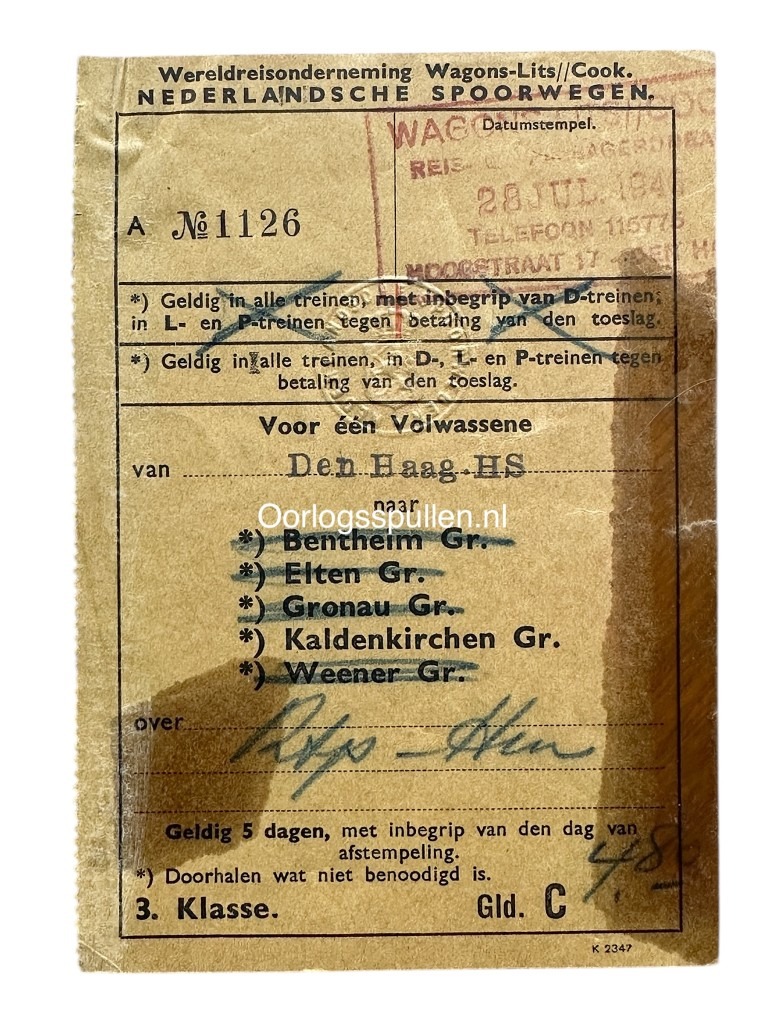 Wereldreisonderneming Wagons-Lits//Cook.
NEDERLANDSCHE SPOORWEGEN.
Datumstempel.
REIS-
28 JUL. 194
TELEFOON 115775
HOOGSTRAAT 17 - DEN H
A №1126
*) Geldig in alle treinen, met inbegrip van D-treinen;
in L- en P-treinen tegen betaling van den toeslag.
*) Geldig in alle treinen, in D-, L- en P-treinen tegen
betaling van den toeslag.
Voor één Volwassene
van Den Haag.HS
naar
Oorlogsspullen.nl
*) Bentheim Gr.
*) Elten Gr.
*) Gronau Gr.
*) Kaldenkirchen Gr.
*) Weener Gr.
over
Geldig 5 dagen, met inbegrip van den dag van
afstempeling.
*) Doorhalen wat niet benoodigd is.
3. Klasse. Gld. C
K 2347